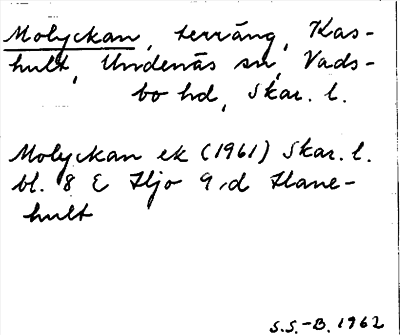 Molyckan, terräng, Kas-
hult, Undenäs sn, Vads-
bo hd, Skar. l.
Molyckan ek (1961) Skar. l.
bl. 8 E Hjo 9 d Hane-
hult
S.S.-B. 1962